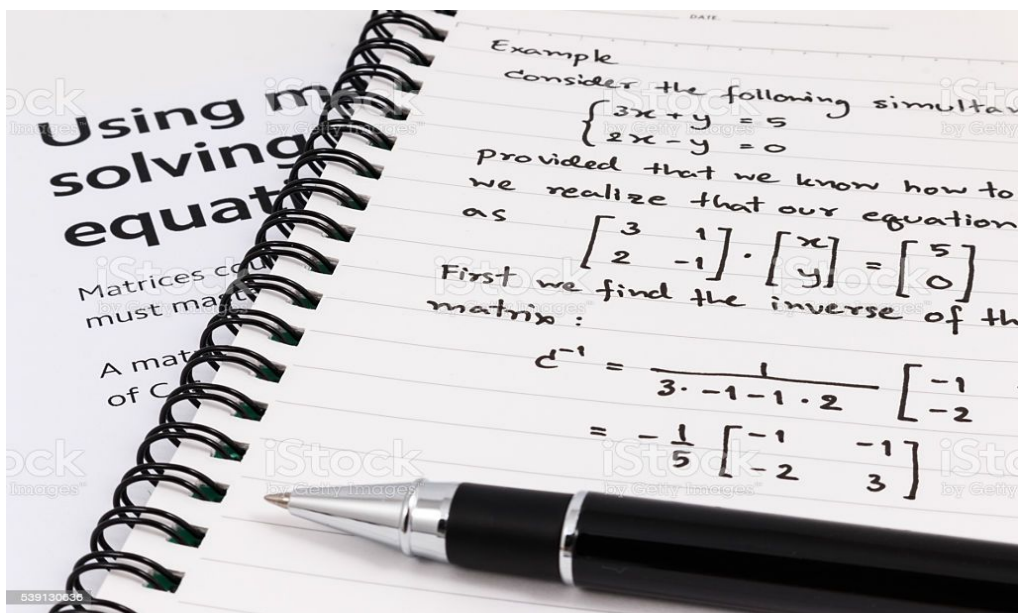 DATE
Using
solving
equat
Matrices cou
must mast
A mat
of C
Example
Consider the following simultan
{3x + y = 5
2x - y = 0
provided that we know how to
we realize that our equation
as [3 1] · [x] = [5]
[2 -1] [y] [0]
First we find the inverse of th
matrix:
C⁻¹ = 1 / (3· -1 -1 · 2) [-1
-2
= - 1/5 [-1 -1]
[-2 3]
iStock
by Getty Images™
539130636